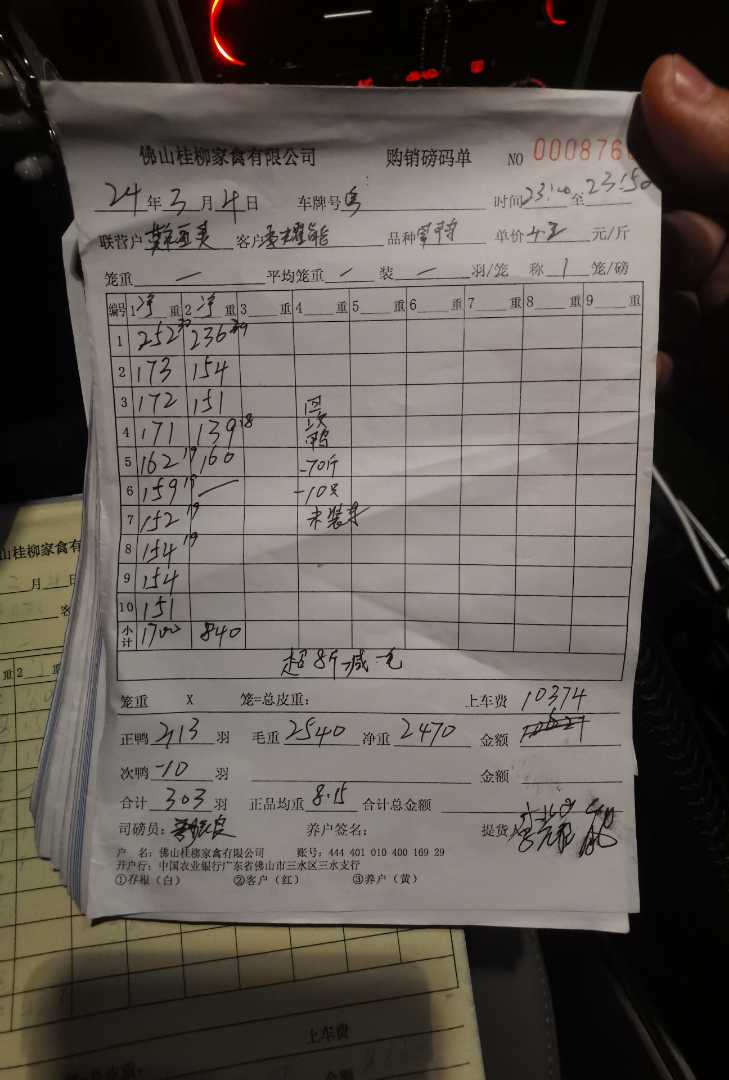 佛山桂柳家禽有限公司 购销磅码单 NO 000876
24年3月4日 车牌号 时间23:00至23:50
联营户 客户 能 品种 单价 元/斤
笼重 — 平均笼重 — 装 — 羽/笼 称 1 笼/磅
编号 1 净 重 2 净 重 3 重 4 重 5 重 6 重 7 重 8 重 9 重
1 252 236
2 173 154
3 172 151 回
4 171 139 18 次 鸭
5 162 19 160 -70斤
6 159 19 — -10只
7 152 19 未装车
8 154 19
9 154
10 151
小计 1700 840
超8斤减一毛
笼重 X 笼=总皮重: 上车费 10374
正鸭 313 羽 毛重 2540 净重 2470 金额
次鸭 -10 羽 金额
合计 303 羽 正品均重 8.15 合计总金额
司磅员: 养户签名: 提货人
户 名: 佛山桂柳家禽有限公司 账号: 444 401 010 400 169 29
开户行: 中国农业银行广东省佛山市三水区三水支行
①存根(白) ②客户(红) ③养户(黄)
山桂柳家禽有
月 日
客
重 2
上车费
金额